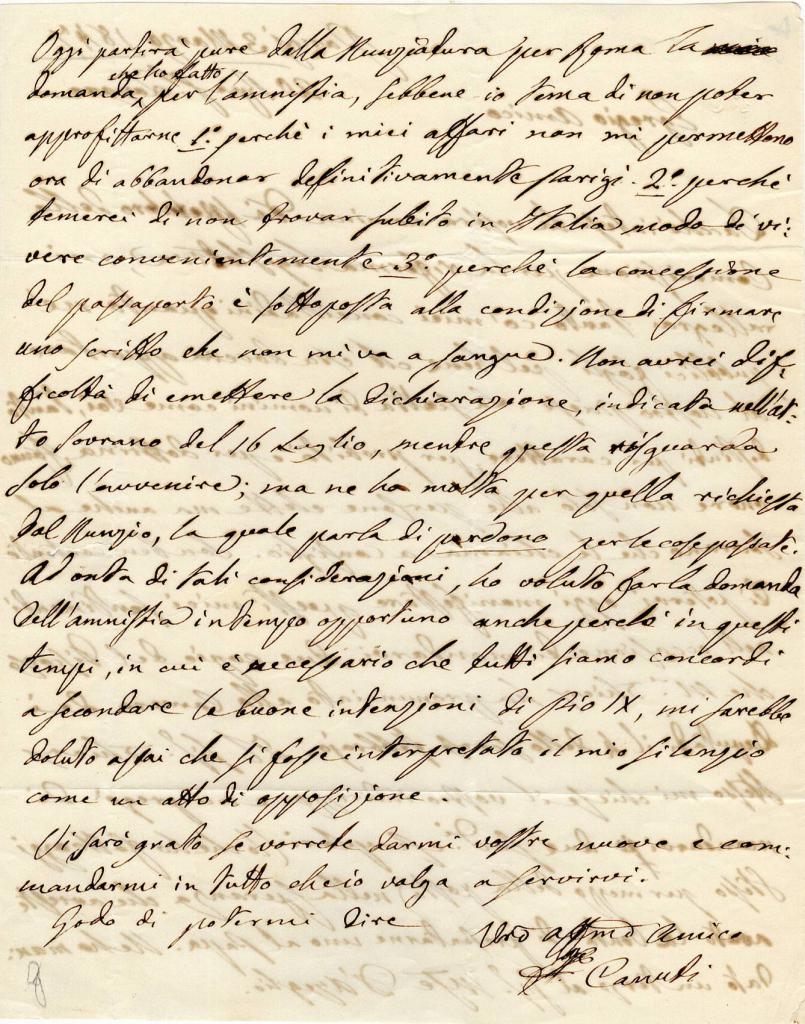 Oggi partirà pure dalla Nunziatura per Roma la
che ho fatto
domanda per l'amnistia, sebbene io tema di non poter
approfittarne 1.° perchè i miei affari non mi permettono
ora di abbandonar definitivamente Parigi. 2.° perchè
temerei di non trovar subito in Italia modo di vi:
vere convenientemente 3.° perchè la concessione
del passaporto è sottoposta alla condizione di firmare
uno scritto che non mi va a sangue. Non avrei dif-
ficoltà di emettere la dichiarazione, indicata nell'at-
to sovrano del 16 Luglio, mentre questa risguarda
solo l'avvenire; ma ne ho molta per quella richiesta
dal Nunzio, la quale parla di perdono per le cose passate.
Ad onta di tali considerazioni, ho voluto far la domanda
dell'amnistia in tempo opportuno anche perchè in questi
tempi, in cui è necessario che tutti siamo concordi
a secondare le buone intenzioni di Pio IX, mi sarebbe
doluto assai che si fosse interpretato il mio silenzio
come un atto di opposizione.
Vi sarò grato se vorrete darmi vostre nuove e com:
mandarmi in tutto che io valga a servirvi.
Godo di potermi dire
Vro affmo Amico
Canuti